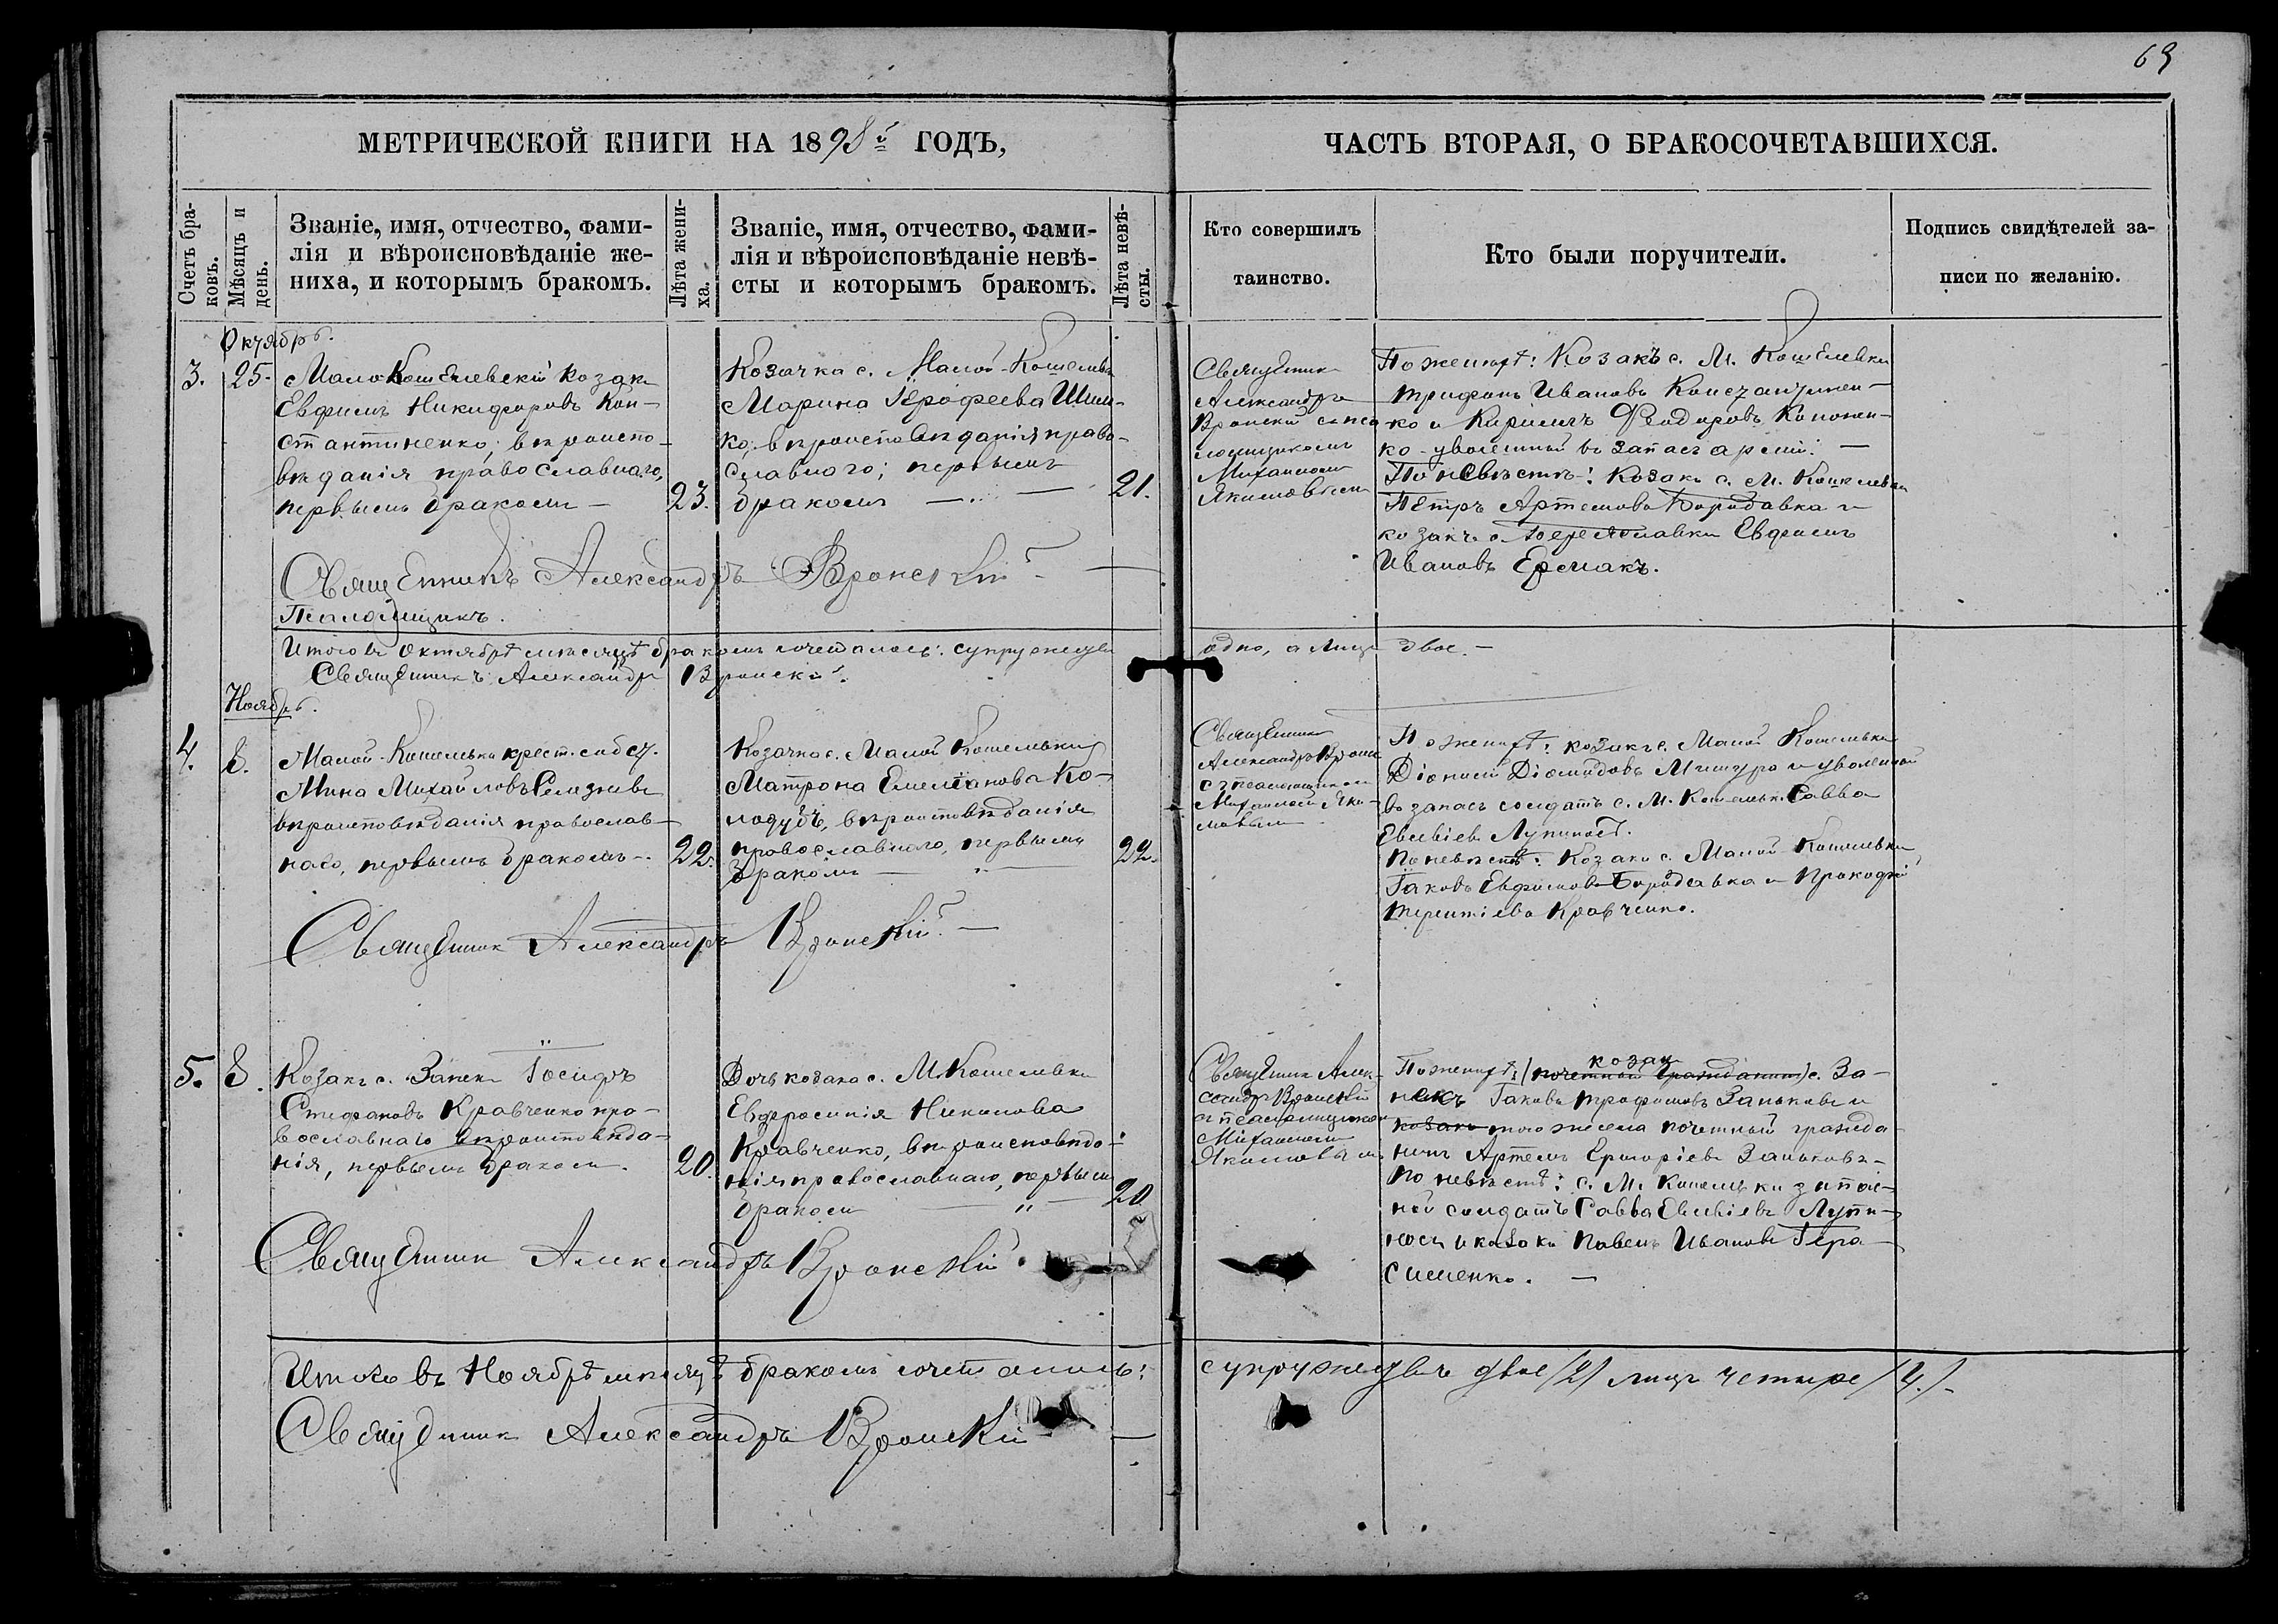 69
МЕТРИЧЕСКОЙ КНИГИ НА 1898й ГОДЪ,
ЧАСТЬ ВТОРАЯ, О БРАКОСОЧЕТАВШИХСЯ.
Счетъ бра-
ковъ.
Мѣсяцъ и
день.
Званіе, имя, отчество, фами-
лія и вѣроисповѣданіе же-
ниха, и которымъ бракомъ.
Лѣта жени-
ха.
Званіе, имя, отчество, фами-
лія и вѣроисповѣданіе невѣ-
сты и которымъ бракомъ.
Лѣта невѣ-
сты.
Кто совершилъ
таинство.
Кто были поручители.
Подпись свидѣтелей за-
писи по желанію.
Октябрь.
3.
25.
Мало Кошелевскій козакъ
Евфимъ Никифоровъ Кон-
стантиненко, вѣроиспо-
вѣданія православнаго,
первымъ бракомъ —
23.
Козачка с. Малой-Кошелевки
Марина Іерофеева
ко, вѣроисповѣданія право-
славнаго; первымъ
бракомъ — —
21.
Священникъ
Александръ
Вронскій съ пса
ломщикомъ
Михаиломъ
Якимовымъ
По женихѣ: Козакъ с. М. Кошелевки
Трифонъ Ивановъ Константинен-
ко и Кирилъ Феодоровъ Кононен-
ко - уволенный въ запасъ арміи. —
По невѣстѣ: Козакъ с. М. Кошелевки
Петръ Артемовъ Бородавка и
козакъ с. Переяславки Евфимъ
Ивановъ Ермакъ.
Священникъ Александръ Вронскій —
Псаломщикъ.
Итого въ Октябрѣ мѣсяцѣ бракомъ сочеталось: супружество
одно, а лицъ двое. —
Священникъ Александръ Вронскій.
Ноябрь.
4.
8.
Малой-Кошелевки крест. собст.
Мина Михайловъ Селезневъ
вѣроисповѣданія православ-
наго, первымъ бракомъ —.
22.
Козачка с. Малой Кошелевки
Матрона Емеліанова Ко-
лодубъ, вѣроисповѣданія
православнаго, первымъ
бракомъ —
22.
Священникъ
Александръ Вронс
съ псаломщикомъ
Михаиломъ Яки-
мовымъ.
По женихѣ: козакъ с. Малой Кошелевки
Діонисій Діомидовъ Мишура и уволенный
въ запасъ солдатъ с. М. Кошелевки Савва
Евсевіевъ Лупиносъ.
По невѣстѣ: Козаки с. Малой Кошелевки
Іаковъ Евфимовъ Бородавка и Прокофій
Терентіевъ Кравченко.
Священникъ Александръ Вронскій. —
5.
8.
Козакъ с. Заньки Іосифъ
Стефановъ Кравченко пра-
вославнаго вѣроисповѣда-
нія, первымъ бракомъ.
20.
Дочь козака с. М. Кошелевки
Евфросинія Никонова
Кравченко, вѣроисповѣда-
нія православнаго, первымъ
бракомъ — " —
20
Священникъ Алек-
сандръ Вронскій
съ псаломщикомъ
Михаиломъ
Якимовымъ
козакъ
По женихѣ: (почетный гражданинъ) с. За-
некъ Іаковъ Трофимовъ Заньковъ и
козакъ того же села почетный гражда-
нинъ Артемъ Григоріевъ Заньковъ —
По невѣстѣ: с. М. Кошелевки запас-
ной солдатъ Савва Евсевіевъ Лупи-
носъ и козакъ Павелъ Ивановъ Гера-
сименко. —
Священникъ Александръ Вронскій.
Итого въ Ноябрѣ мѣсяцѣ бракомъ сочеталось:
супружествъ двое /2/ лицъ четыре /4./ -
Священникъ Александръ Вронскій —